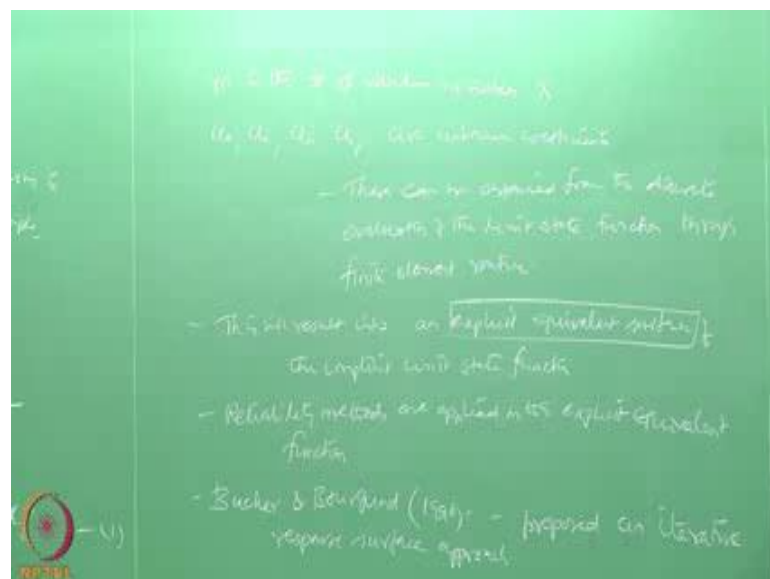 m is the # of random variables X
a₀, aᵢ, aᵢᵢ, aᵢⱼ are unknown constraints
- These can be obtained from the discrete
evaluation of the limit state function through
finite element routine
- This will result into an explicit equivalent surface of
the implicit limit state function
- Reliability methods are applied in this explicit equivalent
function
- Bucher & Bourgund (1990) - proposed an iterative
response surface approach
- (1)
NPTEL